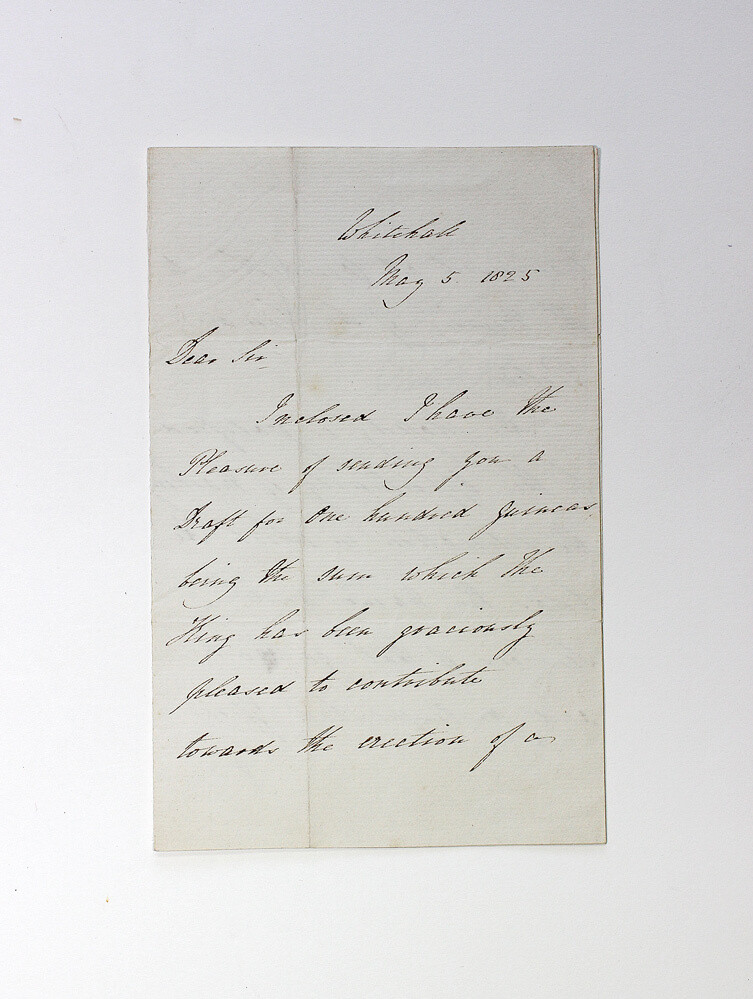 Whitehall
May 5. 1825
Dear Sir
Inclosed I have the
Pleasure of sending you a
Draft for One hundred Guineas
being the sum which the
King has been graciously
pleased to contribute
towards the erection of a